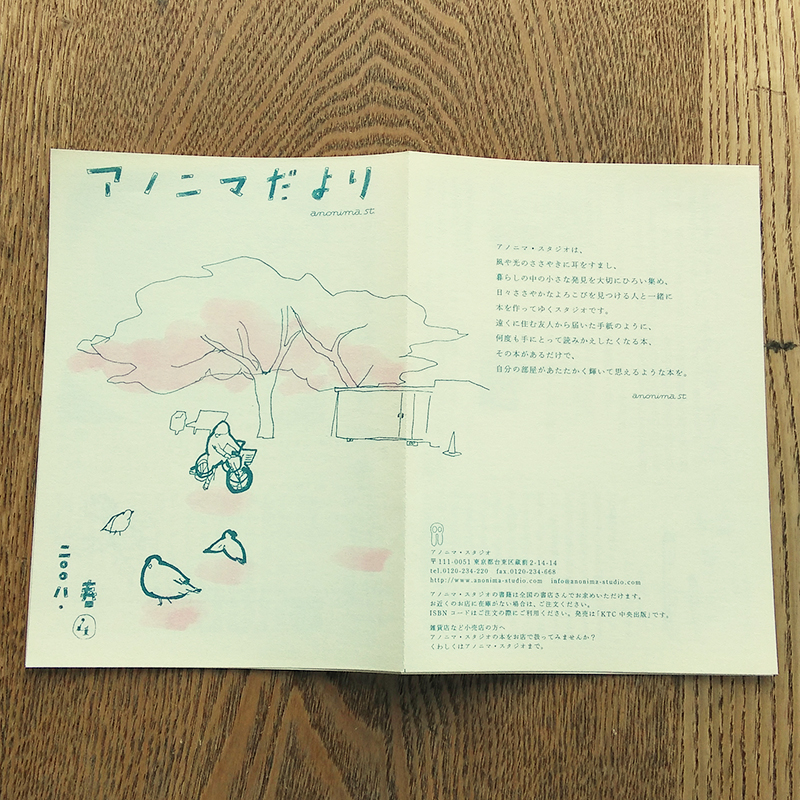 アノニマだより
anonima st.
二〇〇八．
春
アノニマ・スタジオは、
風や光のささやきに耳をすまし、
暮らしの中の小さな発見を大切にひろい集め、
日々ささやかなよろこびを見つける人と一緒に
本を作ってゆくスタジオです。
遠くに住む友人から届いた手紙のように、
何度も手にとって読みかえしたくなる本、
その本があるだけで、
自分の部屋があたたかく輝いて思えるような本を。
anonima st.
アノニマ・スタジオ
〒111-0051 東京都台東区蔵前2-14-14
tel.0120-234-220 fax.0120-234-668
http://www.anonima-studio.com info@anonima-studio.com
アノニマ・スタジオの書籍は全国の書店さんでお求めいただけます。
お近くのお店に在庫がない場合は、ご注文ください。
ISBNコードはご注文の際にご利用ください。発売は「KTC中央出版」です。
雑貨店など小売店の方へ
アノニマ・スタジオの本をお店で扱ってみませんか？
くわしくはアノニマ・スタジオまで。